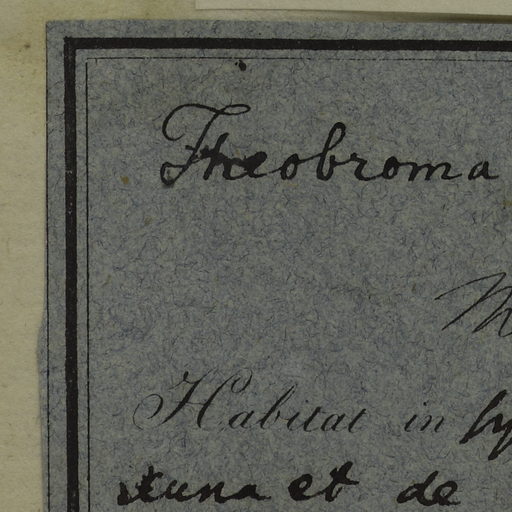 Theobroma
M
Habitat in sy
tuna et de